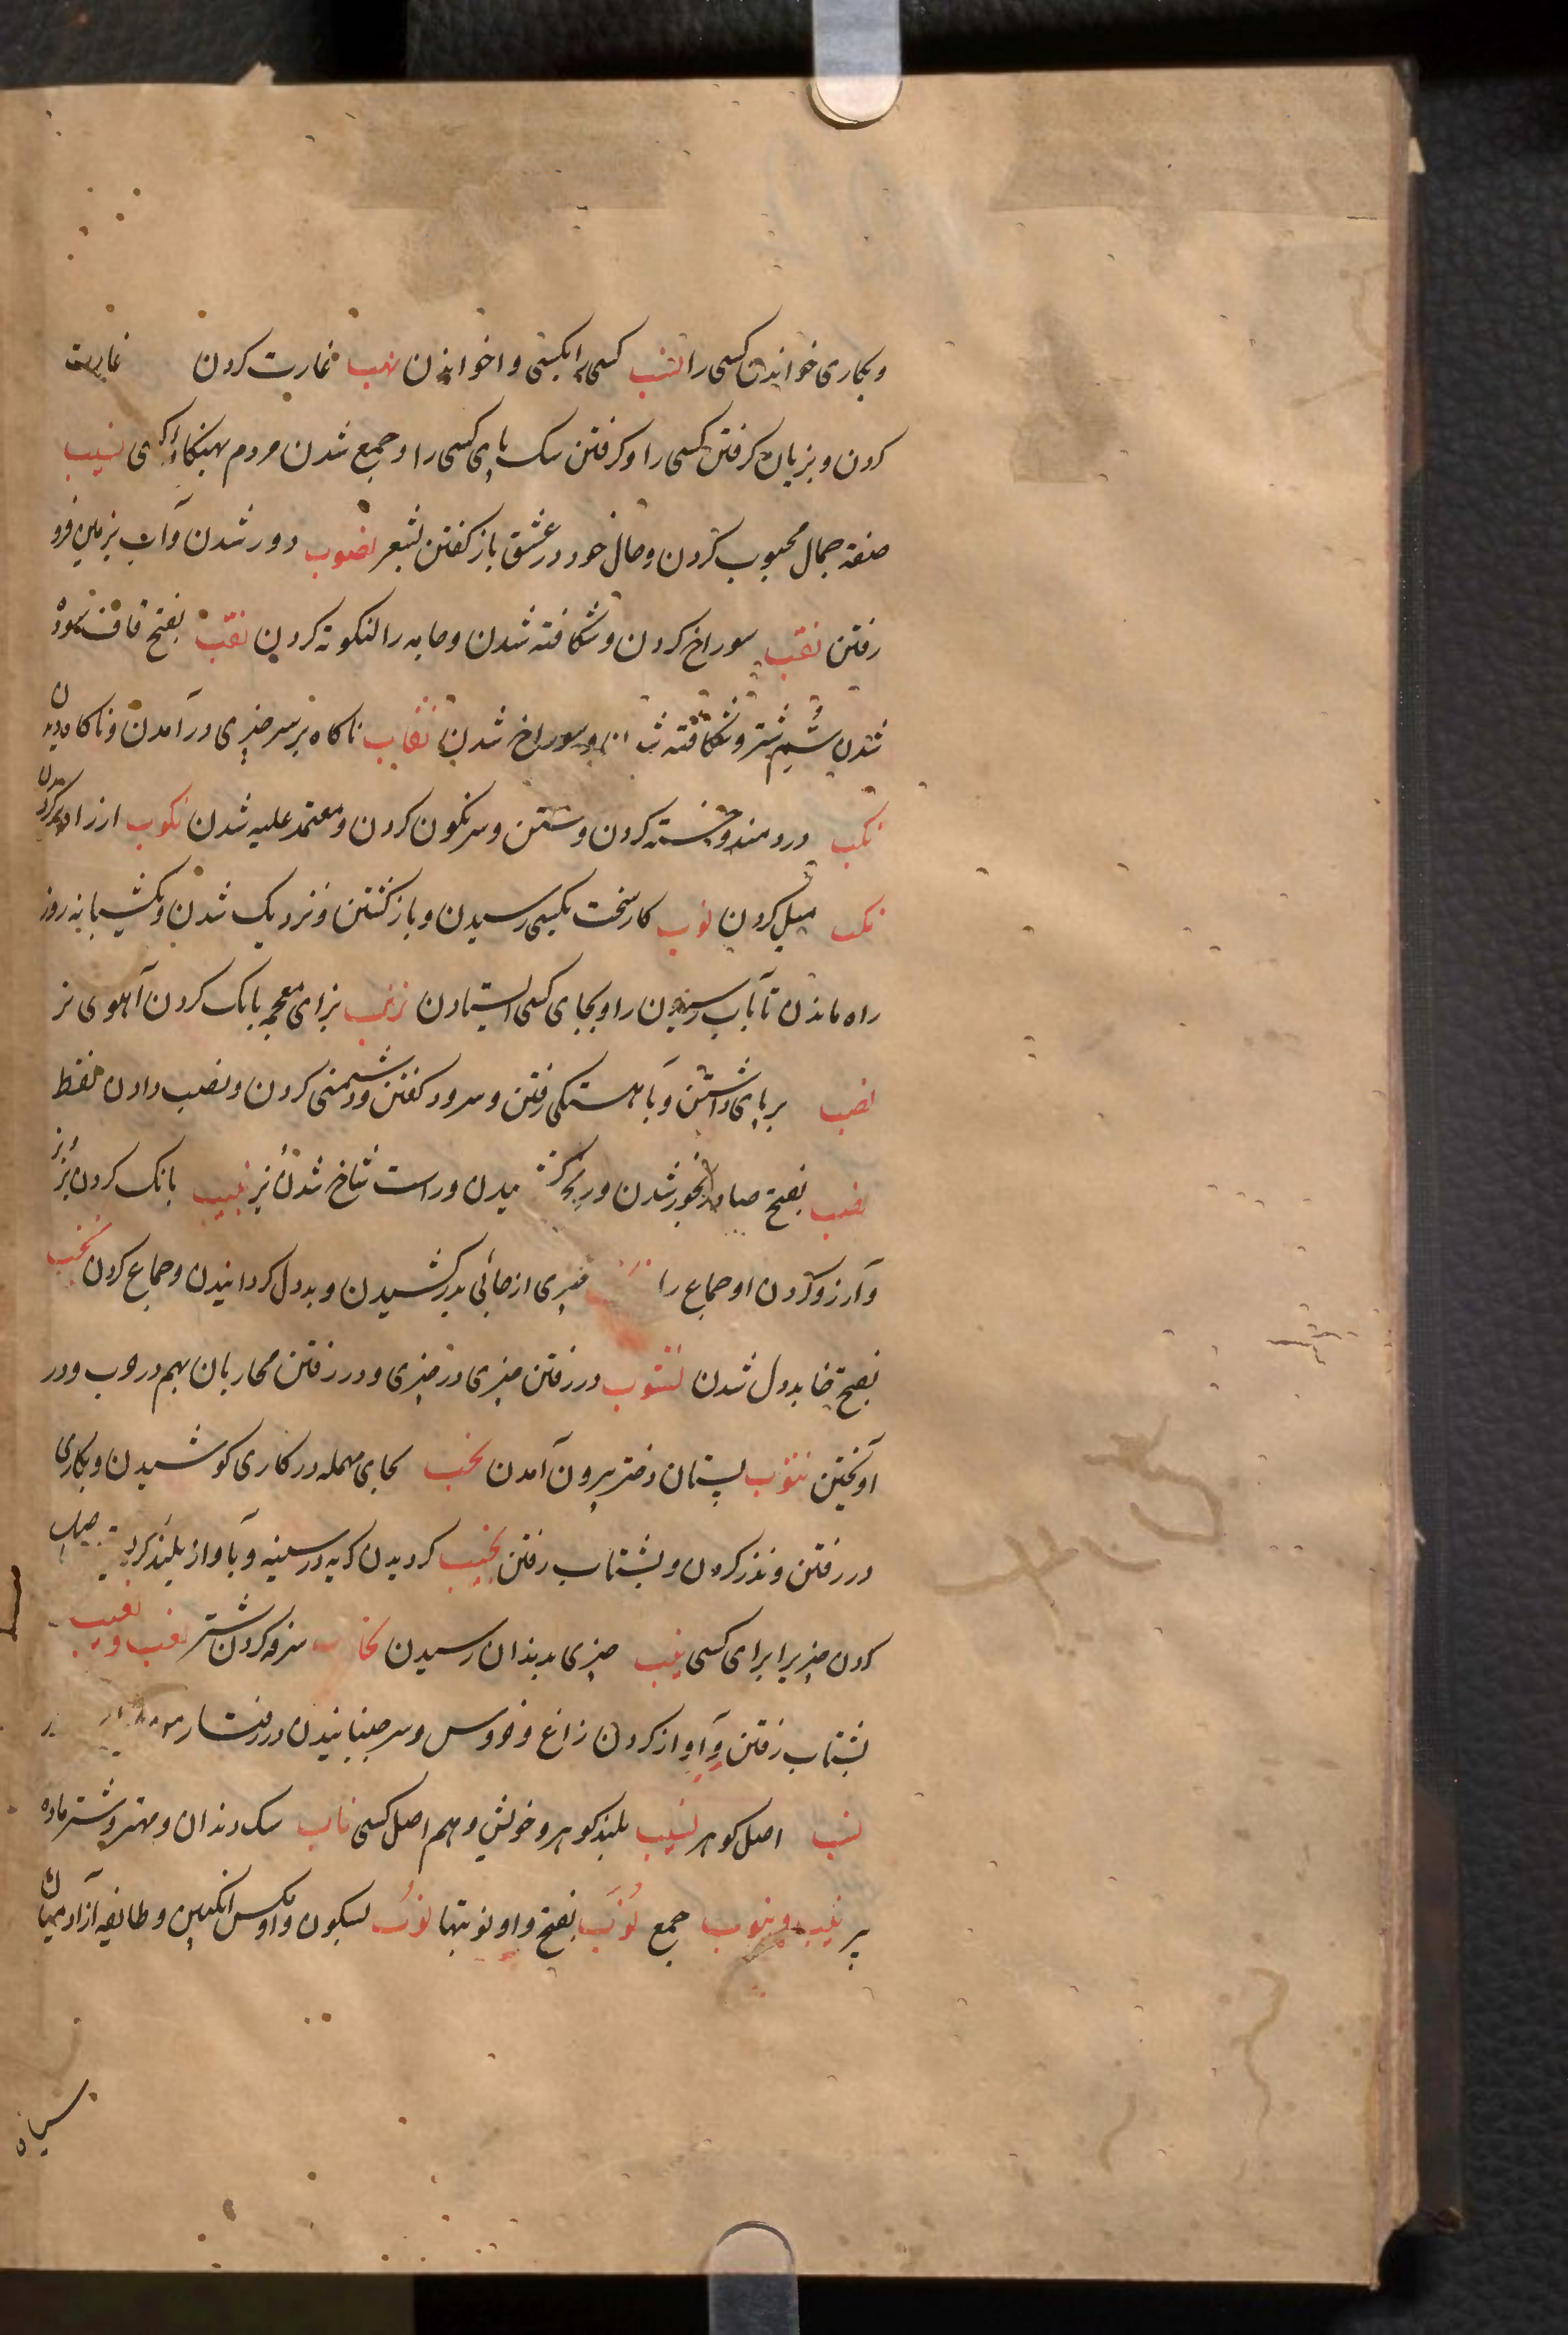 وبکاری خواندن کسی را نسب کسی را بکسی واخواندن نهب غارت کردن غارت
کردن و بزبان کرفتن کسی را و کرفتن سک پای کسی را و جمع شدن مردم بهنکام نسیب
صفة جمال محبوب کردن و حال خود در عشق باز کفتن بشعر نضوب دور شدن و آب بزمین فرو
رفتن نقب سوراخ کردن و شکافته شدن و جامه را کردن نقب بفتح قاف سوده
شدن سُم شتر و شکافته و سوراخ شدن نقاب ناکاه بر سر چیزی درآمدن و ناکاه دیدن
نکب دردمند و خسته کردن و و سرنکون کردن و معتمد علیه شدن نکوب از راه
نکب میل کردن نوب کار سخت بکسی رسیدن و باز کشتن و نزدیک شدن و یکشبانه روز
راه ماندن تا بآب رسیدن را و بجای کسی ایستادن نزب بزای معجمه بانک کردن آهوی نر
نصب بر پای داشتن و بآهستکی رفتن و سرود کفتن و دشمنی کردن و نصب دادن لفظ
نصب بفتح صاد رنجور شدن و و راست شاخ شدن بز نبیب بانک کردن بز نر
و آرزو کردن او جماع را چیزی از جائی بدر کشیدن و بددل کردانیدن و جماع کردن نخب
بفتح خا بددل شدن نشوب در رفتن چیزی در چیزی و در رفتن محاربان بهم در حرب و در
آویختن نتوب پستان دختر بیرون آمدن نحب بحای مهمله در کاری کوشیدن و بکاری
در رفتن و نذر کردن و بشتاب رفتن نحیب کردیدن کریه در سینه و بآواز بلند
کردن چیزیرا برای کسی نیب چیزی بدندان رسیدن نحاب سرفه کردن شتر نعب و نعیب
بشتاب رفتن و آواز کردن زاغ و خروس و سر جنبانیدن در رفتار
نسب اصل کوهر نسیب بلند کوهر و خویش و هم اصل کسی ناب سک دندان و مهتر و شتر ماده
پیر نیب و نیوب جمع نُوَب بفتح واو نوبتها نُوب بسکون واو مکس انکبین و طایفه آزادمیان
سیاه